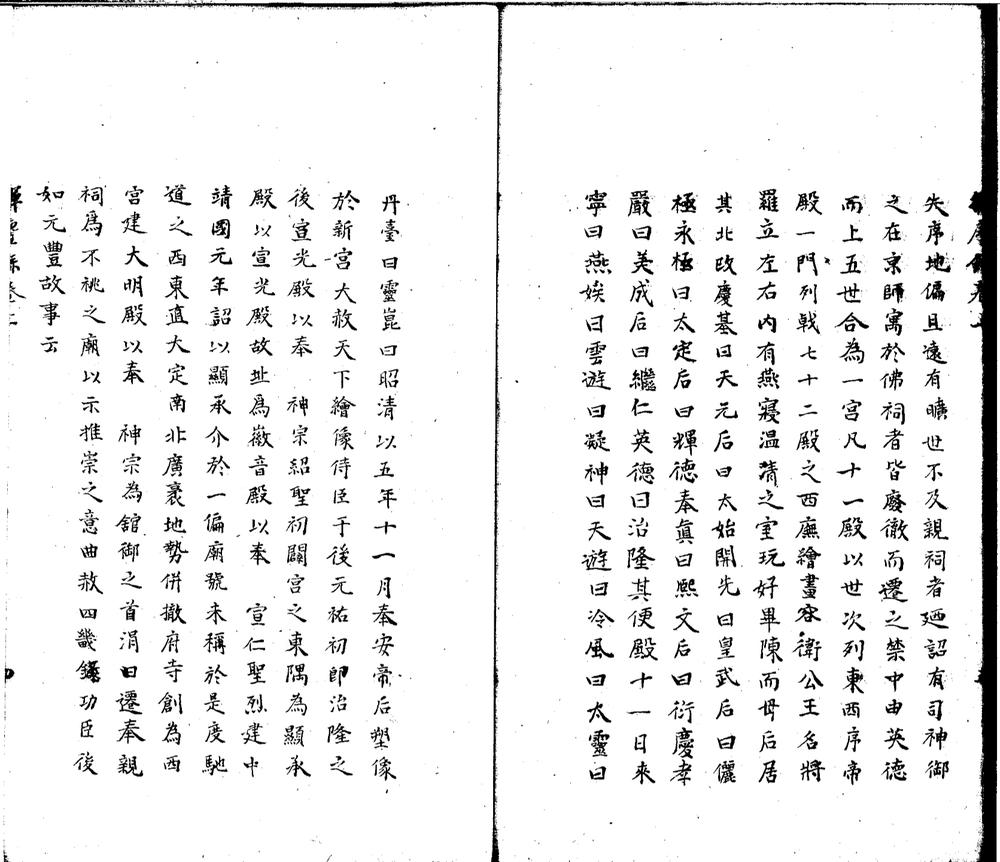 失序地偏且遠有曠世不及親祠者廼詔有司神御
之在京師寓於佛祠者皆廢徹而遷之禁中由英德
而上五世合為一宮凡十一殿以世次列東西序帝
殿一門列戟七十二殿之西廡繪畫容衛公王名將
羅立左右内有燕寢温凊之室玩好畢陳而母后居
其北政慶基曰天元后曰太始開先曰皇武后曰儷
極永極曰太定后曰輝德奉眞曰熙文后曰衍慶孝
嚴曰美成后曰繼仁英德曰治隆其便殿十一曰來
寧曰燕娭曰雲遊曰凝神曰天遊曰泠風曰太靈曰
丹臺曰靈崑曰昭清以五年十一月奉安帝后塑像
於新宮大赦天下繪像侍臣于後元祐初即治隆之
後宣光殿以奉 神宗紹聖初闢宮之東隅為顯承
殿以宣光殿故址爲徽音殿以奉 宣仁聖烈建中
靖國元年詔以顯承介於一偏廟號未稱於是度馳
道之西東直大定南北廣袤地勢併撤府寺創為西
宮建大明殿以奉 神宗為館御之首涓日遷奉親
祠爲不祧之廟以示推崇之意曲赦四畿錄功臣後
如元豐故事云